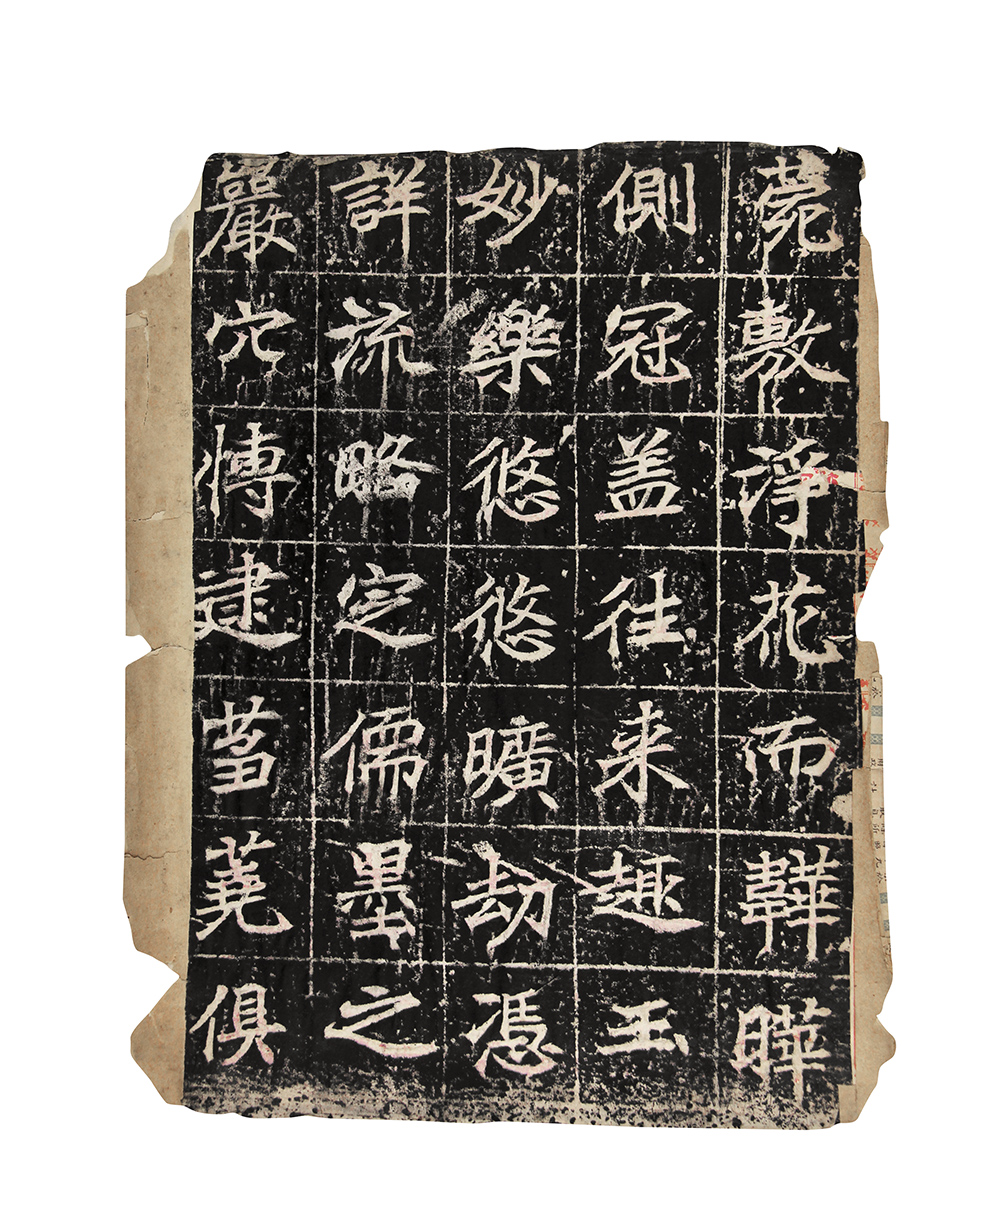 菀敷淨花而韡曄
側冠盖往来趣玉
妙樂悠悠曠劫憑
詳流略定儒墨之
巖穴愽逮蒭蕘俱